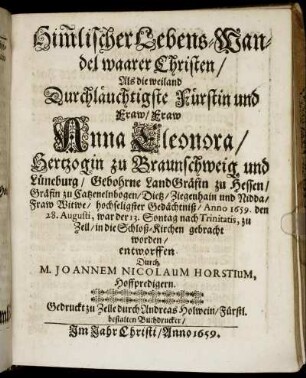 Him̃lischer Lebens-Wan-
del waarer Christen/
Als die weiland
Durchläuchtigste Fürstin und
Fraw/ Fraw
Anna Eleonora/
Hertzogin zu Braunschweig und
Lüneburg/ Gebohrne LandGräfin zu Hessen/
Gräfin zu Catzenelnbogen/ Dietz/ Ziegenhain und Nidda/
Fraw Witwe/ hochseligster Gedächtniß/ Anno 1659. den
28. Augusti, war der 13. Sontag nach Trinitatis, zu
Zell/ in die Schloß-Kirchen gebracht
worden/
entworffen
Durch
M. JOANNEM NICOLAUM HORSTIUM,
Hoffpredigern.
Gedruckt zu Zelle durch Andreas Holwein/ Fürstl.
bestalten Buchdrucker/
Im Jahr Christi/ Anno 1659.